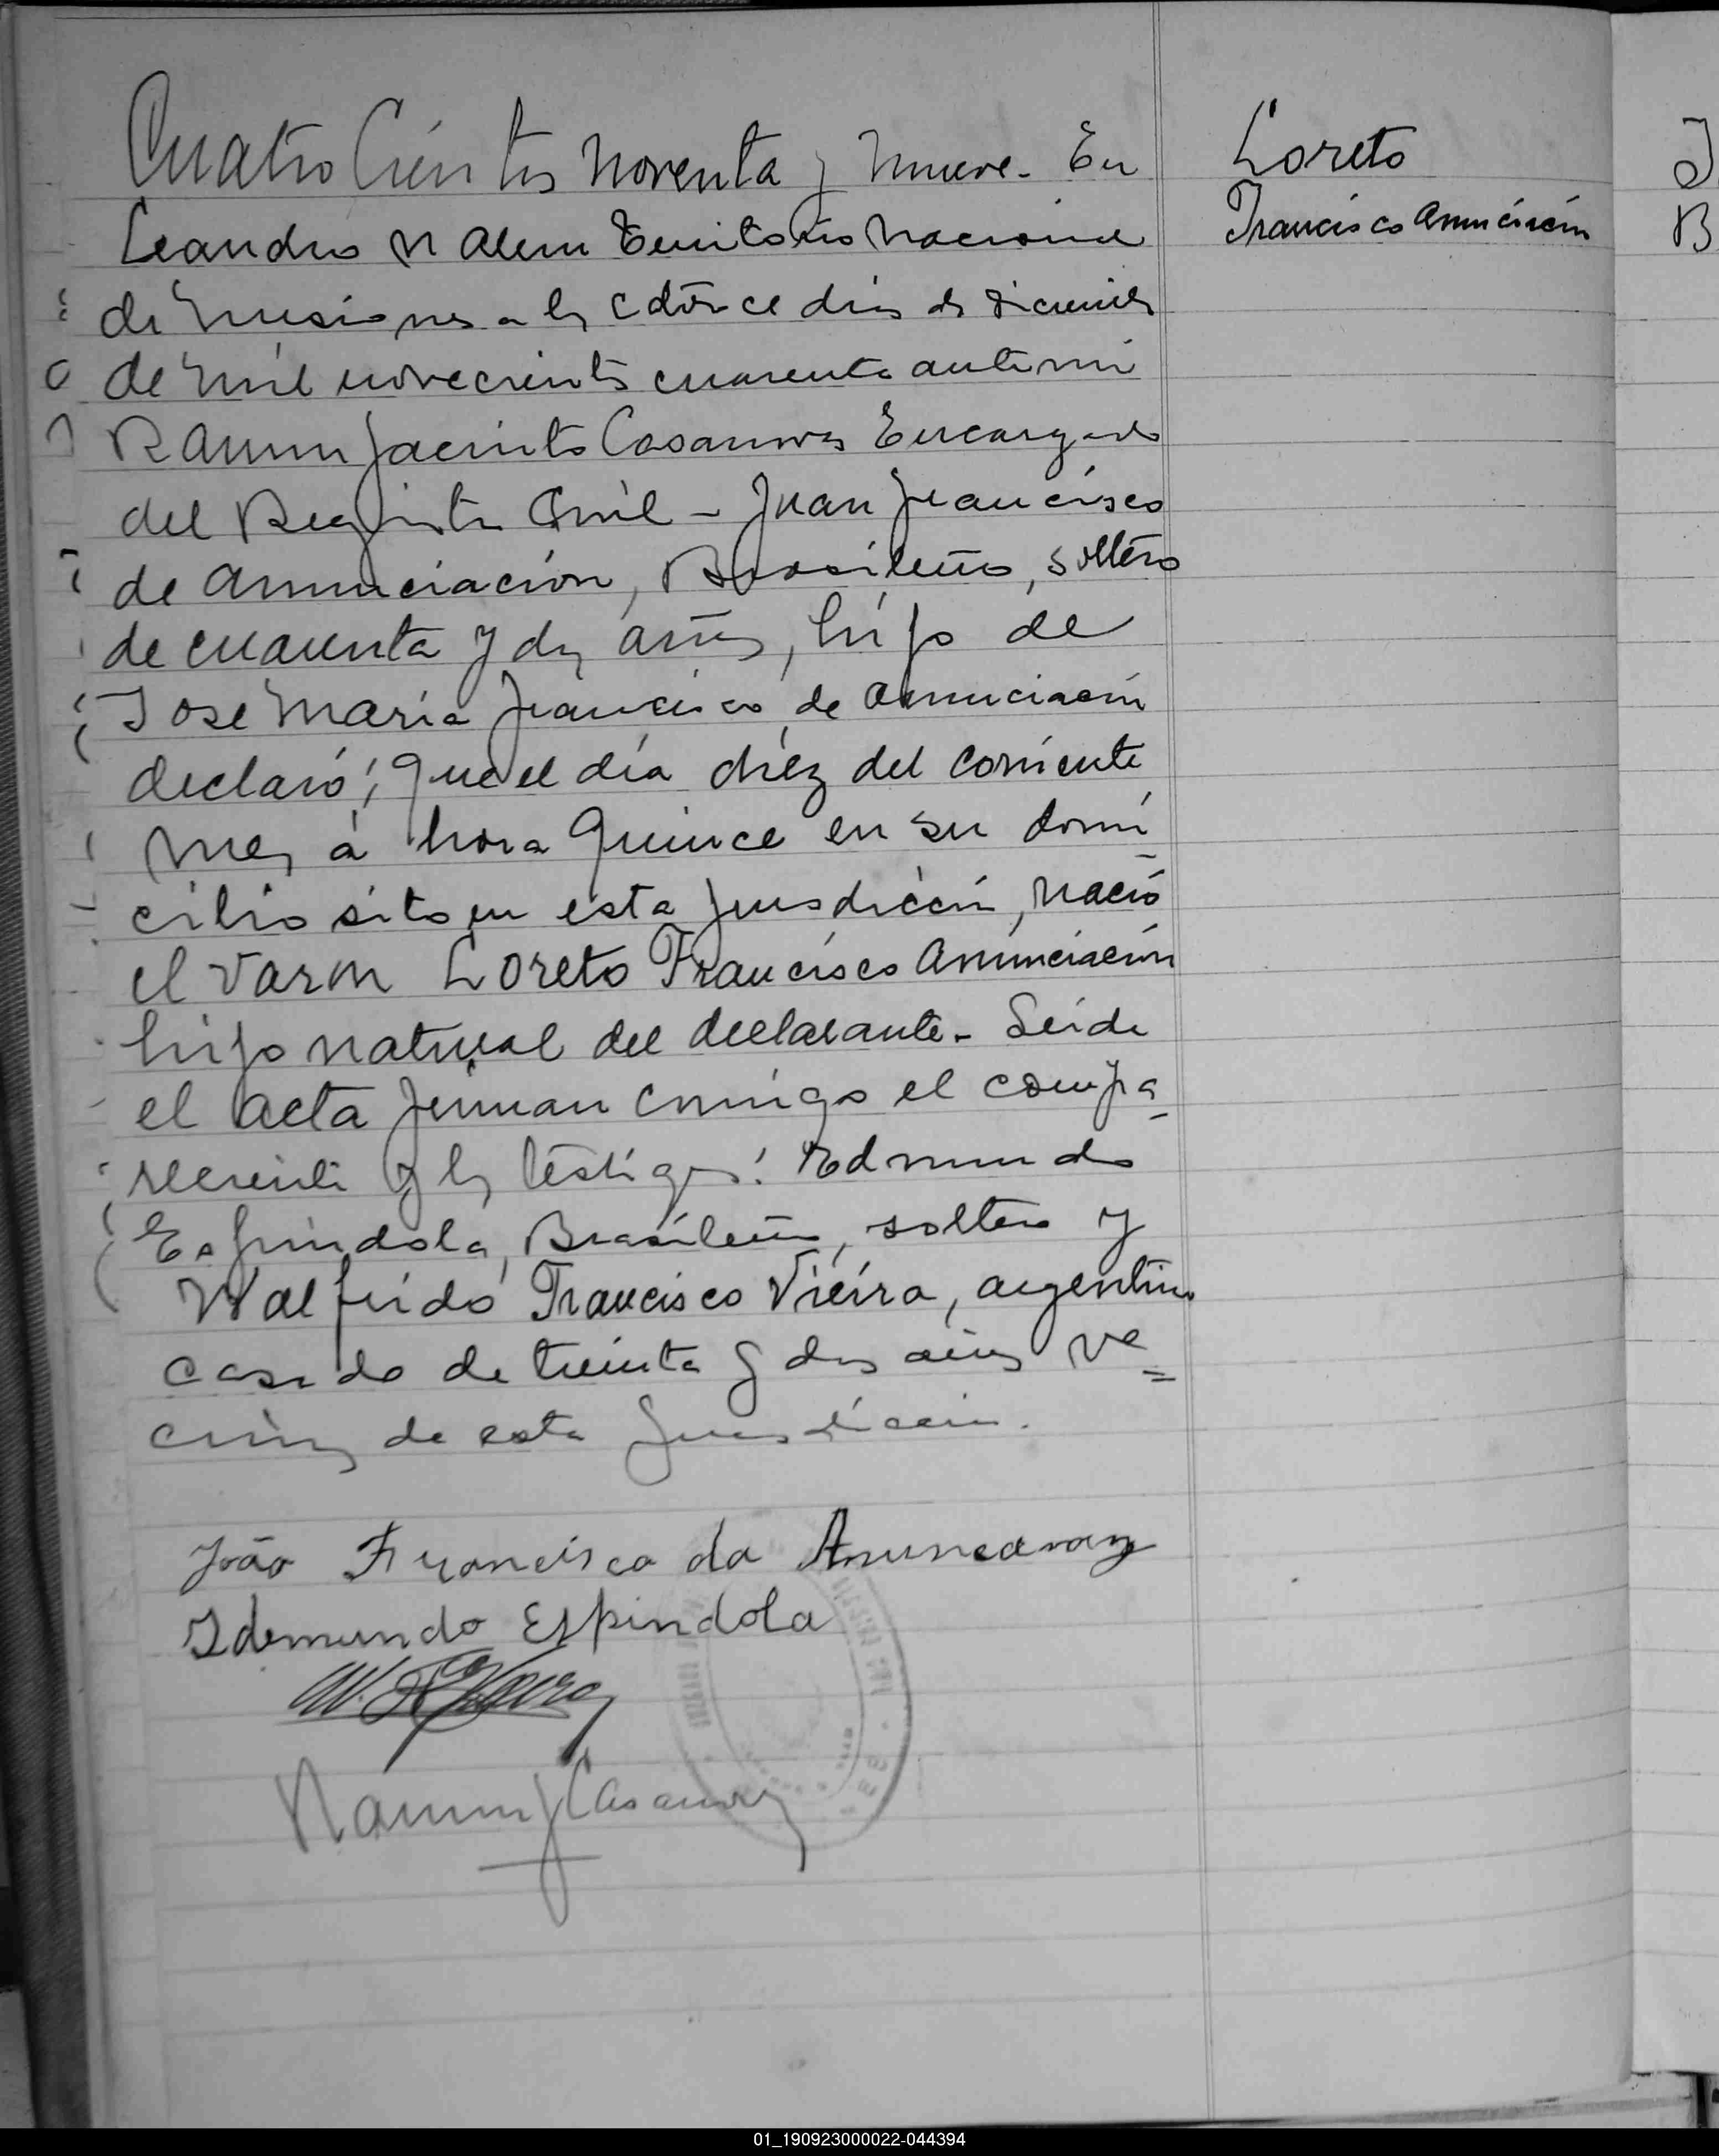 Cuatro Cientos Noventa y Nueve - En
Loreto
Francisco Anunciación
Leandro N Alem Territorio Nacional
de Misiones a los catorce dias de diciembre
de mil novecientos cuarenta ante mi
Ramon Jacinto Casanova Encargado
del Registro Civil - Juan Francisco
de Anunciación, Brasileño, soltero
de cuarenta y dos años, hijo de
Jose Maria Francisco de Anunciación
declaró; Que el día diez del corriente
mes, á hora Quince en su domi
cilio sito en esta jurisdicción, nació
el varon Loreto Francisco Anunciación
hijo natural del declarante - Leida
el acta firman conmigo el compa
reciente y los testigos: Edmundo
Espindola, Brasileño, soltero y
Walfrido Francisco Vieira, argentino
casado de treinta y dos años ve=
cinos de esta jurisdicción.
João Francisco da
Idemundo Espindola
Ramon J Casanova
01_190923000022-044394